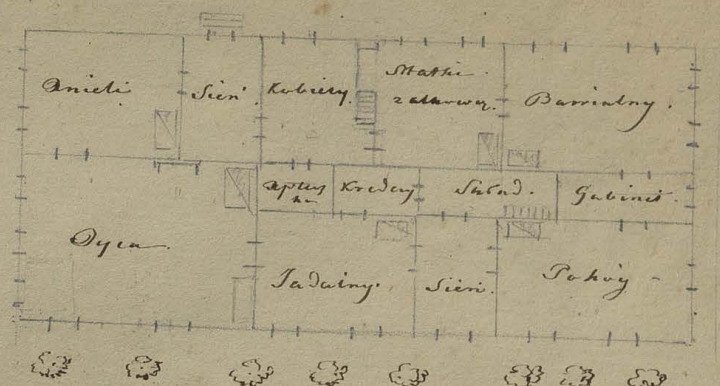 Anieli
Sień.
Kobiety.
Matki
Bawialny.
Aptecz
ka
Kredens
Skład.
Gabinet.
Ojca
Jadalny.
Sień.
Pokój